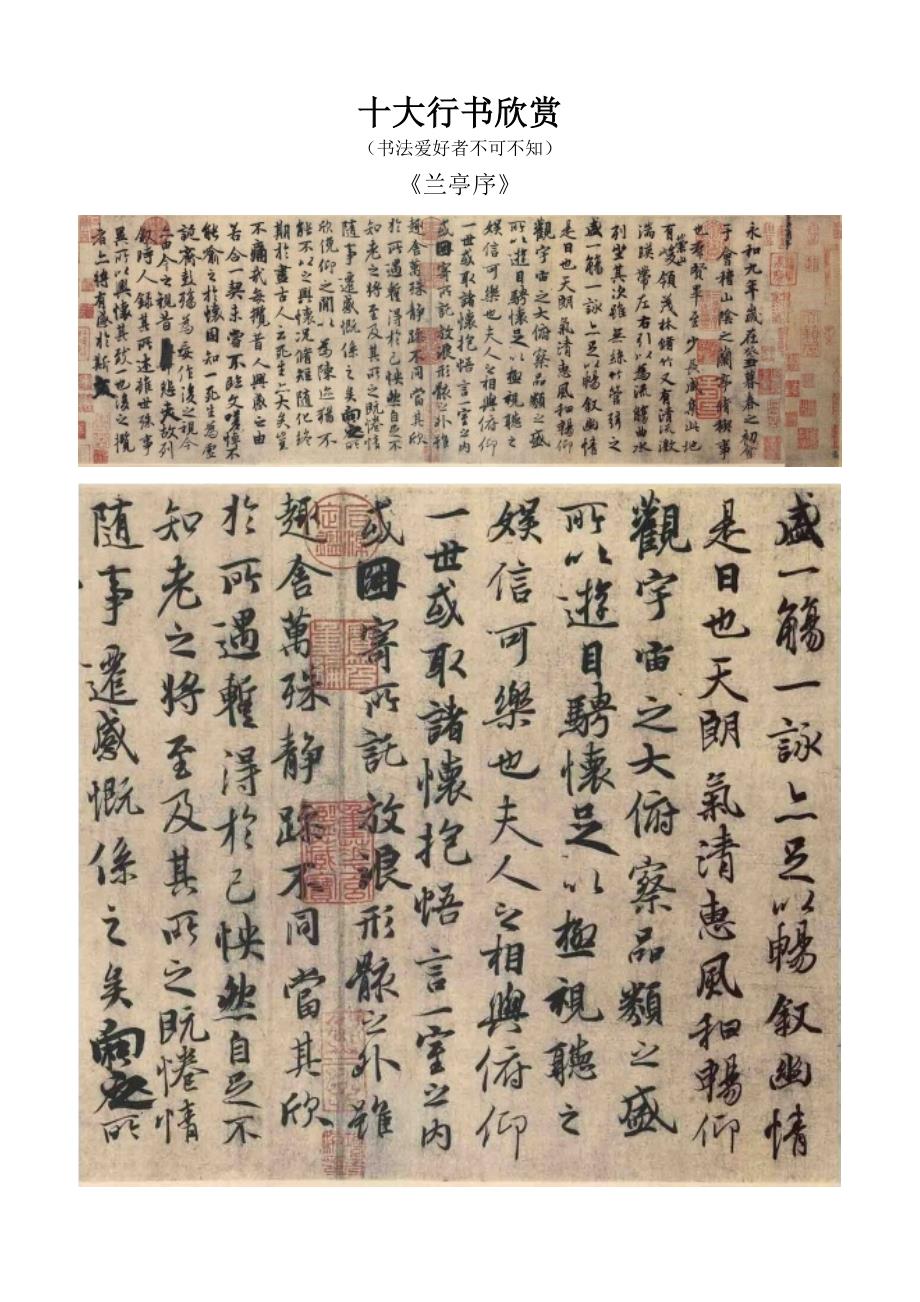 十大行书欣赏
（书法爱好者不可不知）
《兰亭序》
永和九年歲在癸丑暮春之初會
于會稽山陰之蘭亭脩稧事
也羣賢畢至少長咸集此地
有崇山峻領茂林脩竹又有清流激
湍暎帶左右引以為流觴曲水
列坐其次雖無絲竹管弦之
盛一觴一詠亦足以暢敘幽情
是日也天朗氣清惠風和暢仰
觀宇宙之大俯察品類之盛
所以遊目騁懷足以極視聽之
娛信可樂也夫人之相與俯仰
一世或取諸懷抱悟言一室之內
或因寄所託放浪形骸之外雖
趣舍萬殊静躁不同當其欣
於所遇暫得於己怏然自足不
知老之將至及其所之既惓情
隨事遷感慨係之矣向之所
欣俛仰之閒以為陳迹猶不
能不以之興懷況脩短隨化終
期於盡古人云死生亦大矣豈
不痛哉每攬昔人興感之由
若合一契未嘗不臨文嗟悼不
能喻之於懷固知一死生為虛
誕齊彭殤為妄作後之視今
亦由今之視昔悲夫故列
敘時人錄其所述雖世殊事
異所以興懷其致一也後之攬
者亦將有感於斯文
盛一觴一詠亦足以暢敘幽情
是日也天朗氣清惠風和暢仰
觀宇宙之大俯察品類之盛
所以遊目騁懷足以極視聽之
娛信可樂也夫人之相與俯仰
一世或取諸懷抱悟言一室之內
或因寄所託放浪形骸之外雖
趣舍萬殊静躁不同當其欣
於所遇暫得於己怏然自足不
知老之將至及其所之既惓情
隨事遷感慨係之矣向之所